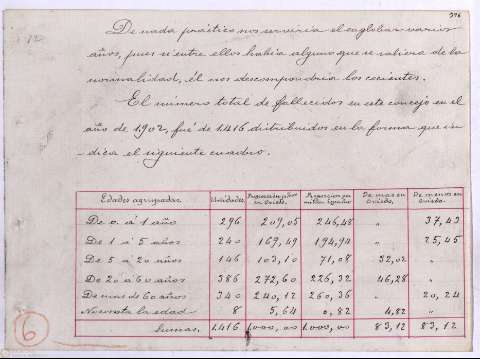 376
12
De nada práctico nos serviría el englobar varios
años, pues si entre ellos había alguno que se saliera de la
normalidad, él nos descompondría los cocientes.
El número total de fallecidos en este concejo en el
año de 1902, fué de 1.416 distribuidos en la forma que in-
dica el siguiente cuadro.
Edades agrupadas. Unidades. Proporción por mil en Oviedo. Proporción por mil en España. De mas en Oviedo. De menos en Oviedo.
De 0 á 1 año 296 209,05 246,48 " 37,43
De 1 á 5 años 240 169,49 194,94 " 25,45
De 5 á 20 años 146 103,10 71,08 32,02 "
De 20 á 60 años 386 272,60 226,32 46,28 "
De mas de 60 años 340 240,12 260,36 " 20,24
No consta la edad 8 5,64 0,82 4,82 "
Sumas. 1.416 1.000,00 1.000,00 83,12 83,12
6